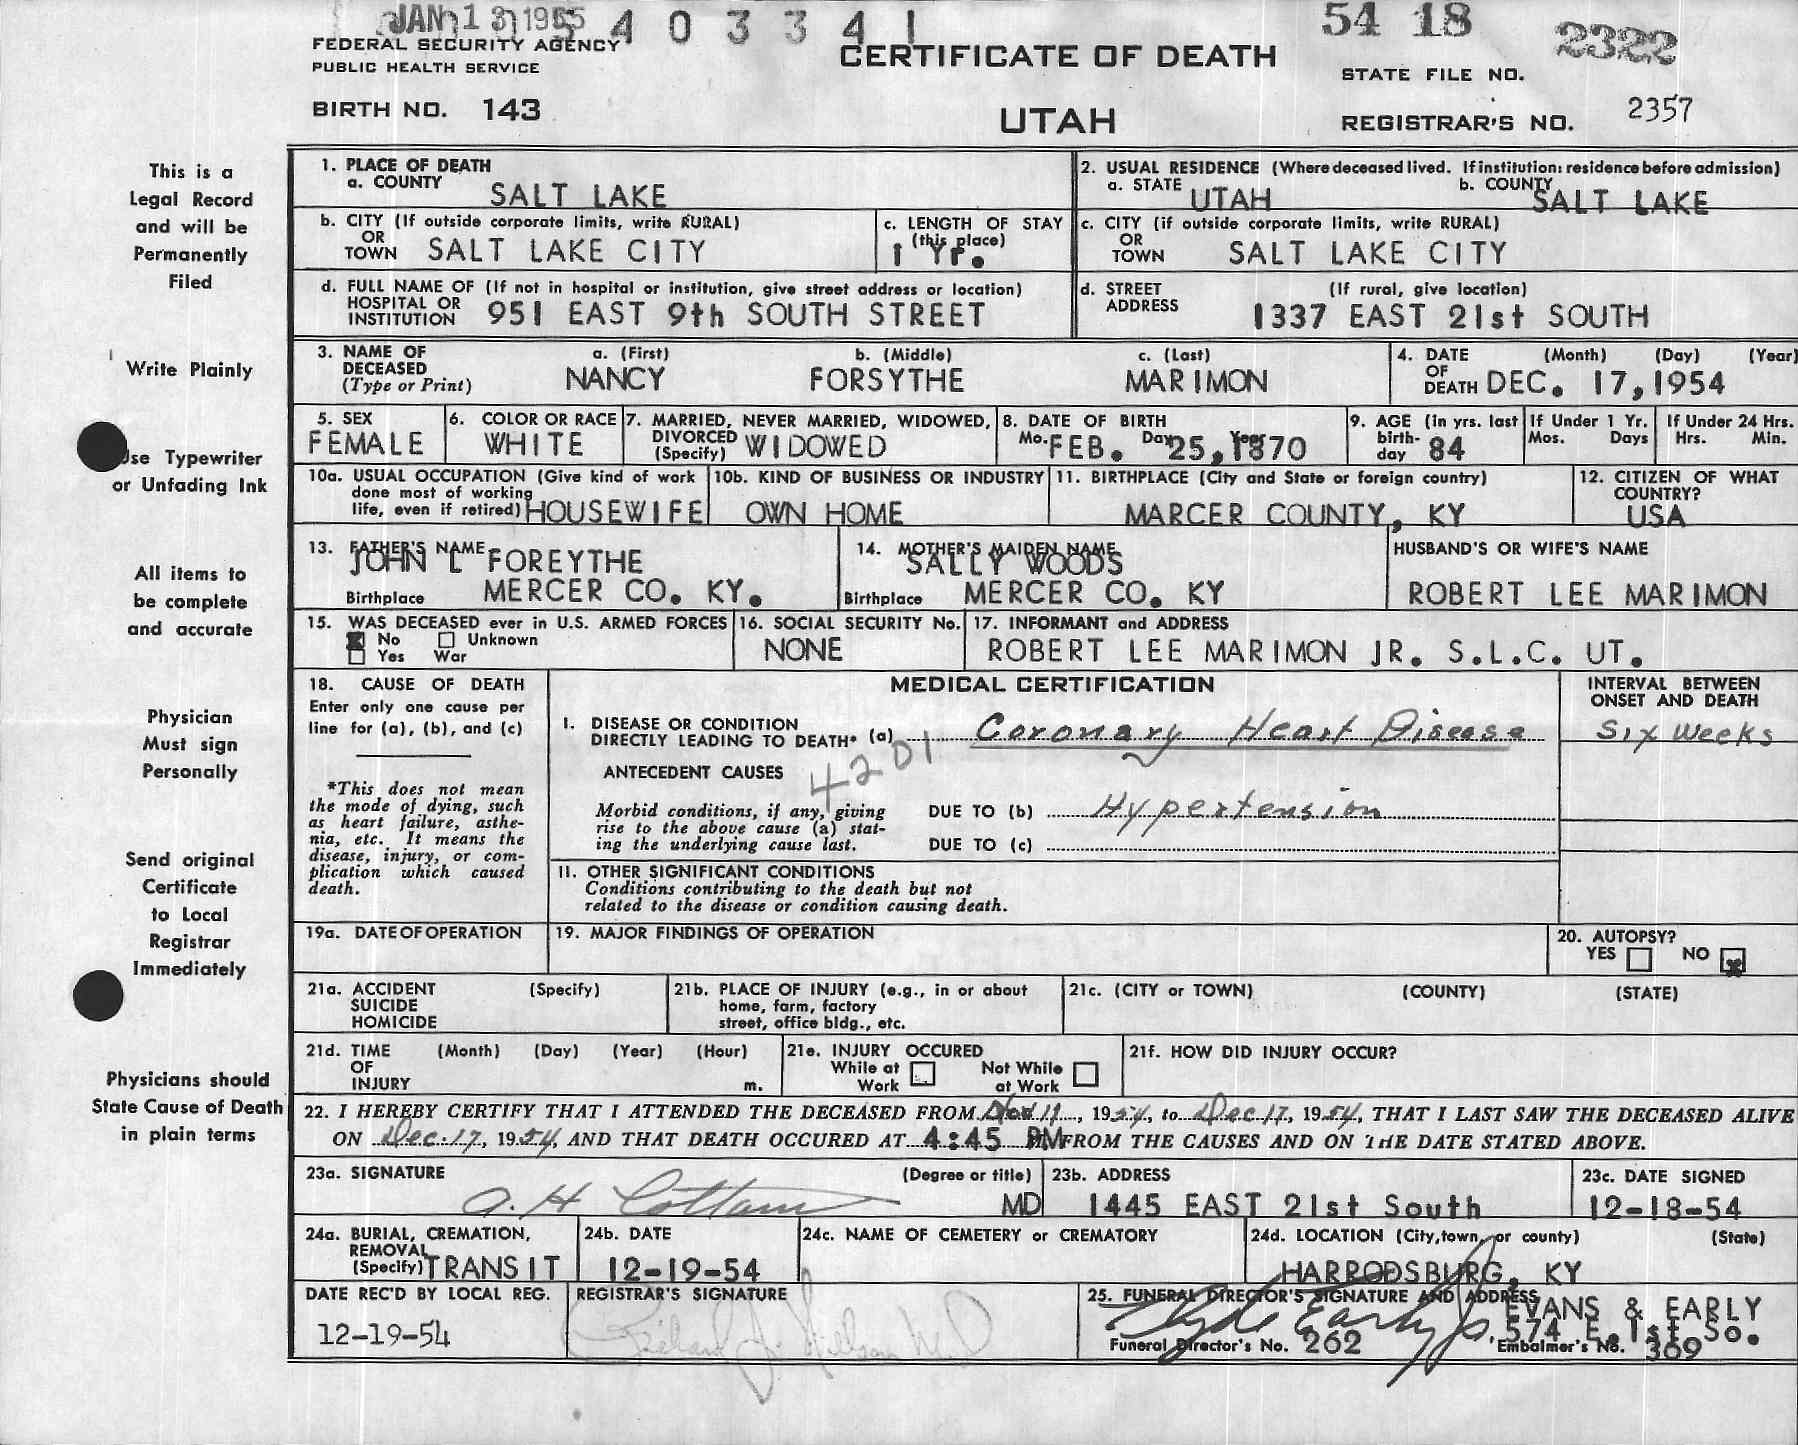 JAN 13 1955 5 4 0 3 3 4 1 54 18 2322
FEDERAL SECURITY AGENCY
PUBLIC HEALTH SERVICE
CERTIFICATE OF DEATH
STATE FILE NO.
BIRTH NO. 143
UTAH
REGISTRAR'S NO. 2357
This is a
Legal Record
and will be
Permanently
Filed
Write Plainly
Use Typewriter
or Unfading Ink
All items to
be complete
and accurate
Physician
Must sign
Personally
Send original
Certificate
to Local
Registrar
Immediately
Physicians should
State Cause of Death
in plain terms
1. PLACE OF DEATH
a. COUNTY SALT LAKE
2. USUAL RESIDENCE (Where deceased lived. If institution: residence before admission)
a. STATE UTAH b. COUNTY SALT LAKE
b. CITY (If outside corporate limits, write RURAL)
OR
TOWN SALT LAKE CITY
c. LENGTH OF STAY
(this place)
1 Yr.
c. CITY (if outside corporate limits, write RURAL)
OR
TOWN SALT LAKE CITY
d. FULL NAME OF (If not in hospital or institution, give street address or location)
HOSPITAL OR
INSTITUTION 951 EAST 9th SOUTH STREET
d. STREET (If rural, give location)
ADDRESS 1337 EAST 21st SOUTH
3. NAME OF a. (First) b. (Middle) c. (Last)
DECEASED NANCY FORSYTHE MARIMON
(Type or Print)
4. DATE (Month) (Day) (Year)
OF
DEATH DEC. 17, 1954
5. SEX
FEMALE
6. COLOR OR RACE
WHITE
7. MARRIED, NEVER MARRIED, WIDOWED,
DIVORCED
(Specify) WIDOWED
8. DATE OF BIRTH
Mo. Day Year
FEB. 25, 1870
9. AGE (in yrs. last
birth-
day 84
If Under 1 Yr.
Mos. Days
If Under 24 Hrs.
Hrs. Min.
10a. USUAL OCCUPATION (Give kind of work
done most of working
life, even if retired) HOUSEWIFE
10b. KIND OF BUSINESS OR INDUSTRY
OWN HOME
11. BIRTHPLACE (City and State or foreign country)
MARCER COUNTY, KY
12. CITIZEN OF WHAT
COUNTRY?
USA
13. FATHER'S NAME
JOHN L FOREYTHE
Birthplace MERCER CO. KY.
14. MOTHER'S MAIDEN NAME
SALLY WOODS
Birthplace MERCER CO. KY
HUSBAND'S OR WIFE'S NAME
ROBERT LEE MARIMON
15. WAS DECEASED ever in U.S. ARMED FORCES
No Unknown
Yes War
16. SOCIAL SECURITY No.
NONE
17. INFORMANT and ADDRESS
ROBERT LEE MARIMON JR. S.L.C. UT.
18. CAUSE OF DEATH
Enter only one cause per
line for (a), (b), and (c)
*This does not mean
the mode of dying, such
as heart failure, asthe-
nia, etc. It means the
disease, injury, or com-
plication which caused
death.
MEDICAL CERTIFICATION
INTERVAL BETWEEN
ONSET AND DEATH
I. DISEASE OR CONDITION
DIRECTLY LEADING TO DEATH* (a) Coronary Heart Disease Six Weeks
4201
ANTECEDENT CAUSES
Morbid conditions, if any, giving
rise to the above cause (a) stat-
ing the underlying cause last.
DUE TO (b) Hypertension
DUE TO (c)
11. OTHER SIGNIFICANT CONDITIONS
Conditions contributing to the death but not
related to the disease or condition causing death.
19a. DATE OF OPERATION
19. MAJOR FINDINGS OF OPERATION
20. AUTOPSY?
YES NO
21a. ACCIDENT (Specify)
SUICIDE
HOMICIDE
21b. PLACE OF INJURY (e.g., in or about
home, farm, factory
street, office bldg., etc.
21c. (CITY or TOWN) (COUNTY) (STATE)
21d. TIME (Month) (Day) (Year) (Hour)
OF
INJURY m.
21e. INJURY OCCURED
While at Not While
Work at Work
21f. HOW DID INJURY OCCUR?
22. I HEREBY CERTIFY THAT I ATTENDED THE DECEASED FROM Nov 11, 1954, to Dec 17, 1954, THAT I LAST SAW THE DECEASED ALIVE
ON Dec. 17, 1954, AND THAT DEATH OCCURED AT 4:45 PM FROM THE CAUSES AND ON THE DATE STATED ABOVE.
23a. SIGNATURE (Degree or title)
A. H Cottam MD
23b. ADDRESS
1445 EAST 21st South
23c. DATE SIGNED
12-18-54
24a. BURIAL, CREMATION,
REMOVAL
(Specify) TRANSIT
24b. DATE
12-19-54
24c. NAME OF CEMETERY or CREMATORY
24d. LOCATION (City, town, or county) (State)
HARRODSBURG, KY
DATE REC'D BY LOCAL REG.
12-19-54
REGISTRAR'S SIGNATURE
25. FUNERAL DIRECTOR'S SIGNATURE AND ADDRESS
Clyde Early Jr. EVANS & EARLY
574 E. 1st. So.
Funeral Director's No. 262 Embalmer's No. 369